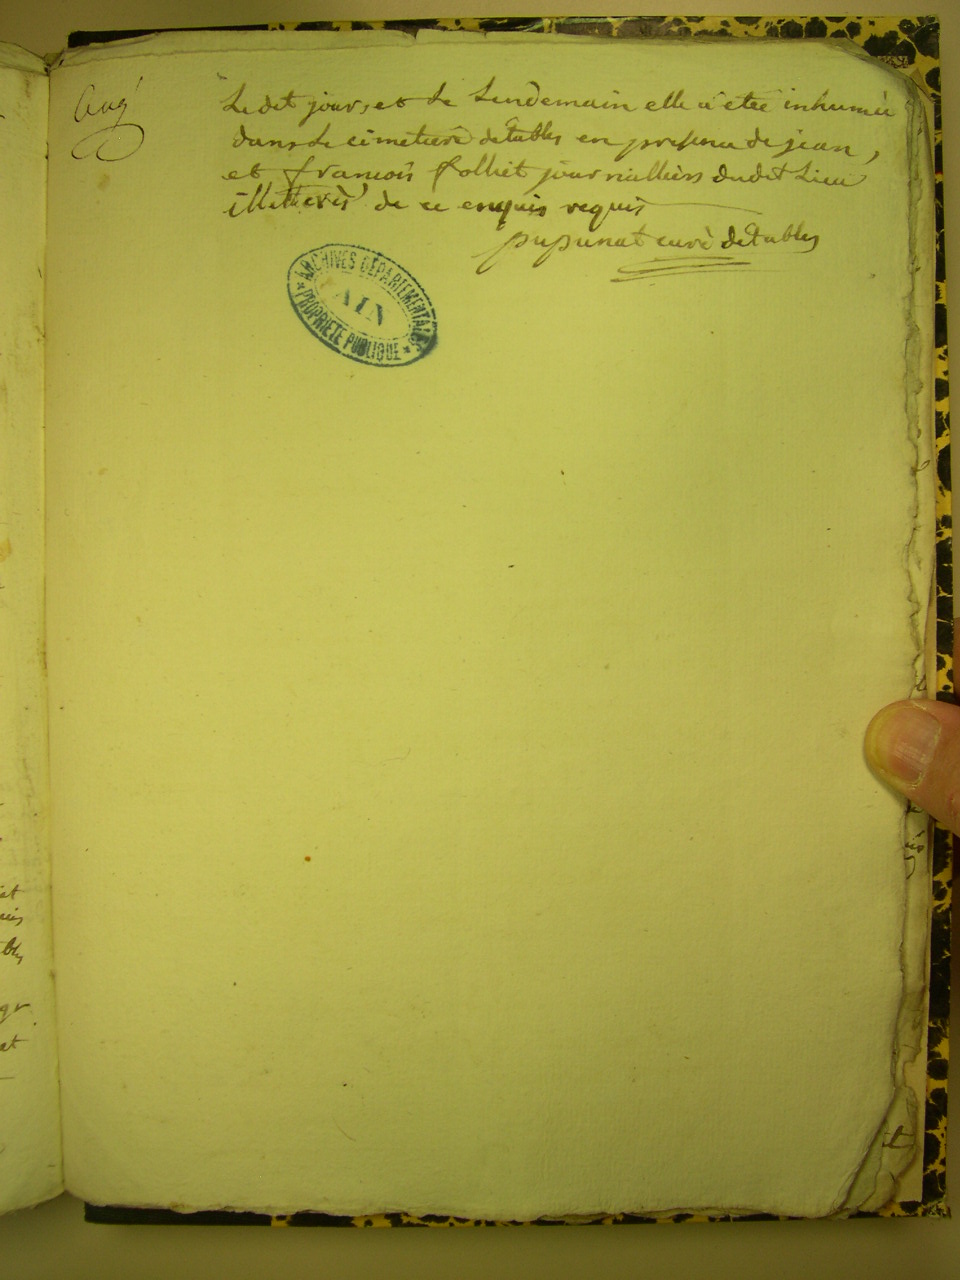 Aug
Le dit jour, et le Lendemain elle a étée inhumée
dans Le cimetierè détables en presence de jean,
et francois folliet journalliers dudit Lieu
illetterés de ce enquis requis
curè détables
ARCHIVES DÉPARTEMENTALES
AIN
PROPRIÉTÉ PUBLIQUE